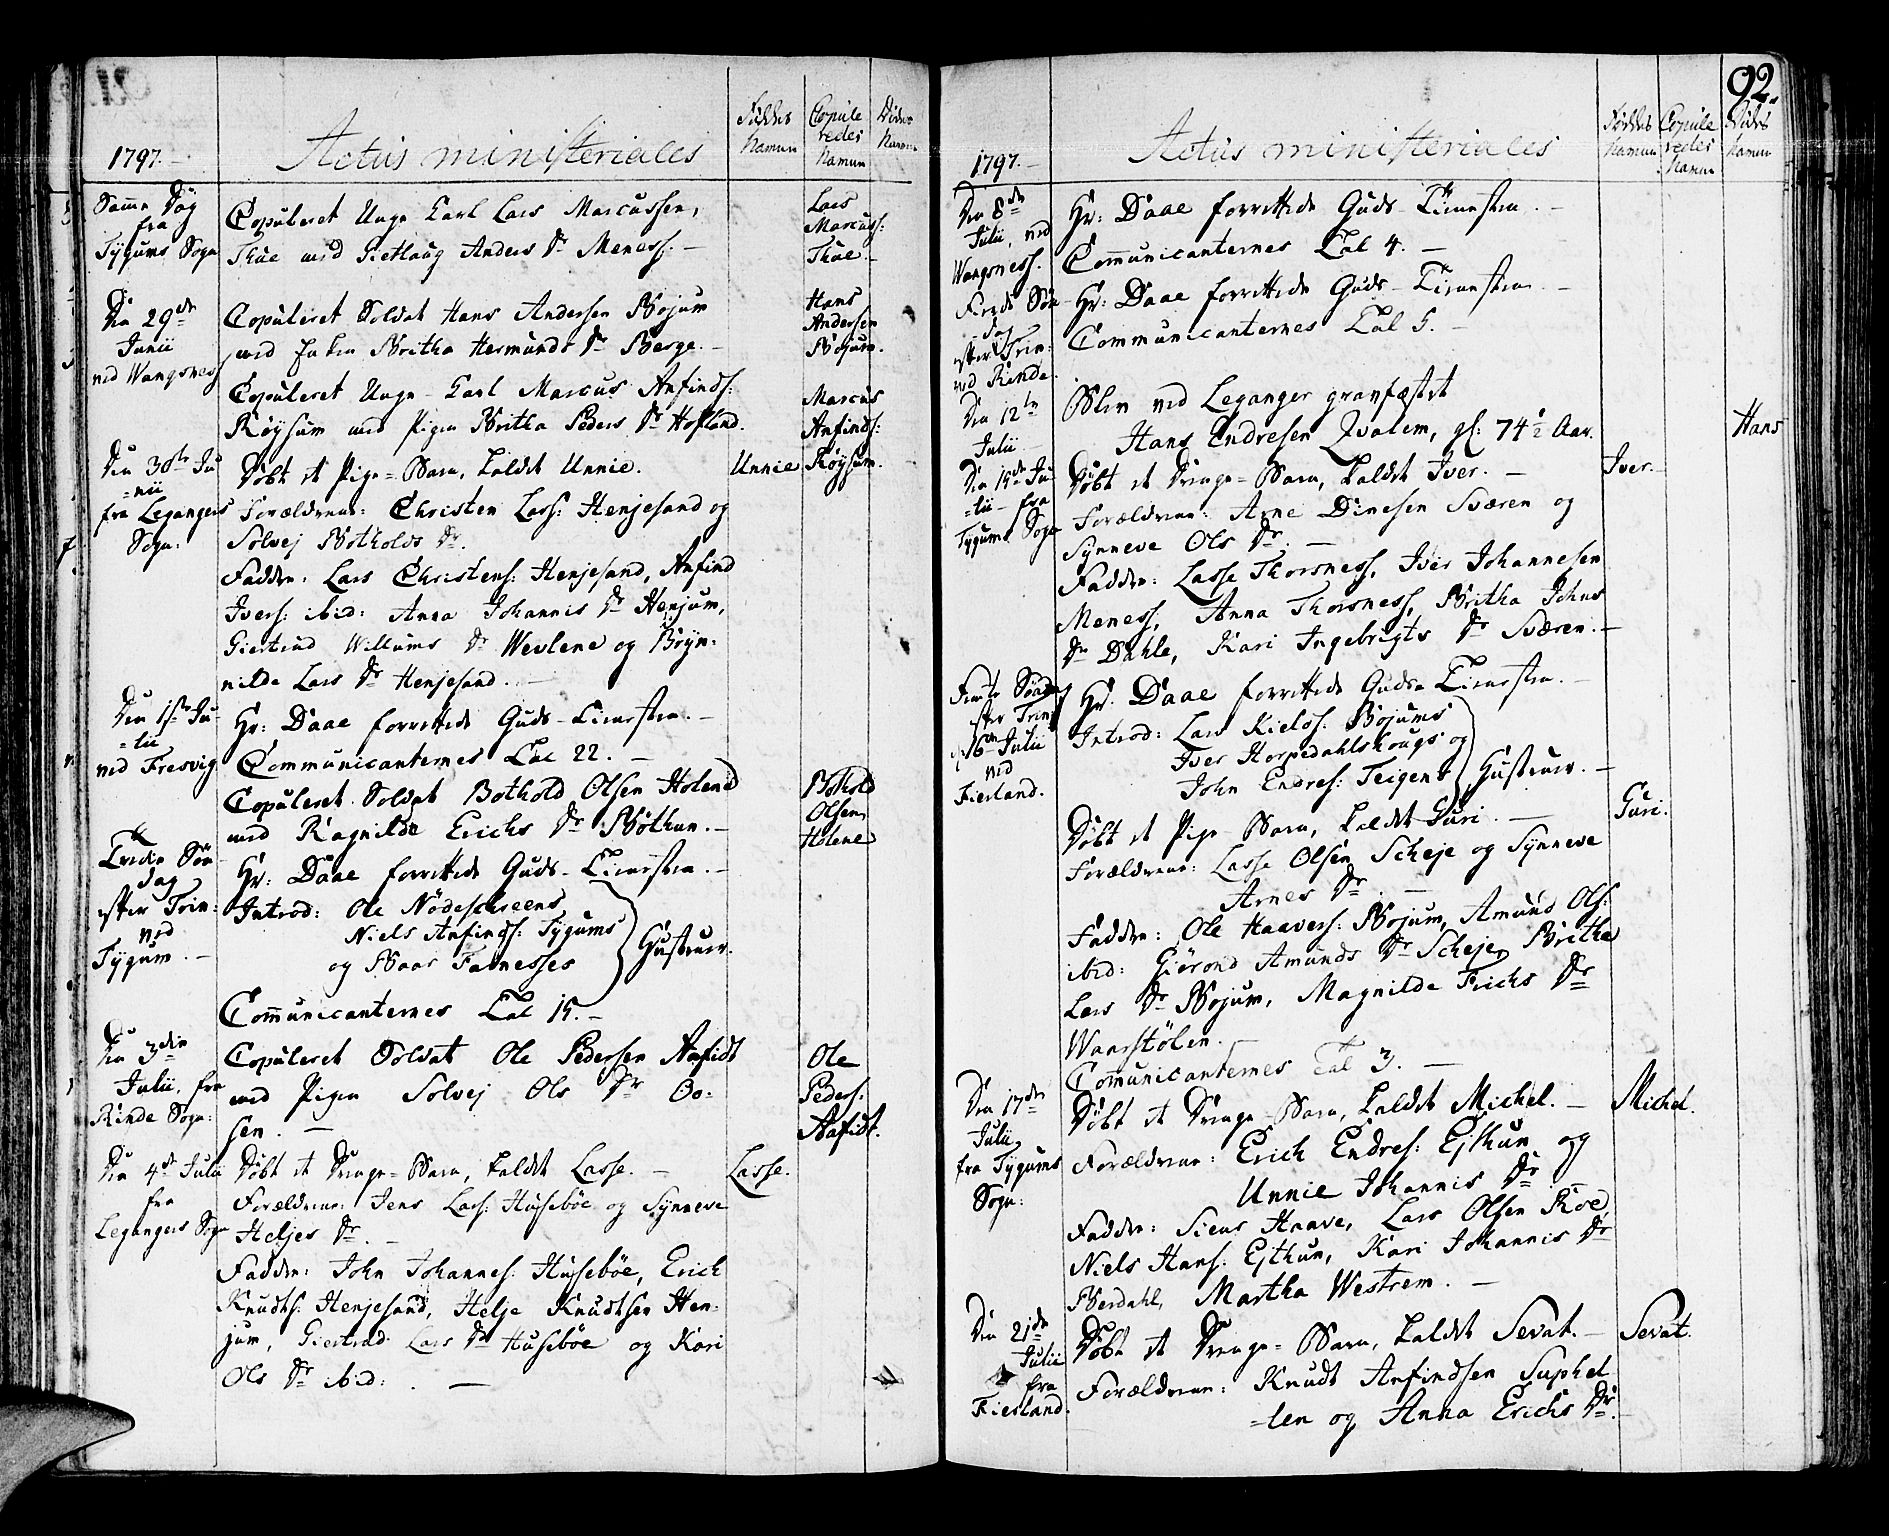 1797.
Actus ministeriales
Føddes Namm
Copuleredes Namm
Dødes Namm
Samme Dag
fra
Tygums Sogn
Copuleret Unge Karl Lars Marcussen,
Thue med Gietlaug Anders Dr Meness: -
Lars
Marcuss:
Thue.-
Den 29de
Junii
ved Wangsness
Copuleret Soldat Hans Andersen Bojum
med Enken Britha Hermunds Dr Berge.-
Hans
Andersen
Bojum.
Copuleret Unge-Karl Marcus Anfinds:
Røysum med Pigen Britha Peders Dr Hofland.
Marcus
Anfinds:
Røysum.
Den 30te Ju
=nii
fra Legangers
Sogn:
Døbt et Pige=Barn, kaldet Unnie.
Unnie
Forældrene: Christen Larss: Henjesand og
Solvej Botholds Dr.
Faddere: Lars Christens: Henjesand, Anfind
Ivers: ibid: Anna Johannis Dr Henjum,
Giertrud Willums Dr Wevlene og Bryn-
nilde Lars Dr Henjesand.
Den 1ste Ju-
=lii
ved Fresvig
Hr: Daae forrettede Guds-Tienesten.-
Communicanternes Tal 22. -
Copuleret Soldat Bothold Olsen Holene
med Ragnilde Erichs Dr Bøthun.-
Bothold
Olsen
Holene
Tredie Søn
dag
efter Trin:
ved
Tygum.-
Hr: Daae forrettede Guds-Tienesten.-
Introd: Ole Nødeschreens
Niels Anfinds: Tygums
og Baar Farnesses
Hustruer.
Communicanternes Tal 15.-
Den 3die
Julii fra
Rinde Sogn:
Copuleret Soldat Ole Pedersen Aafidt
med Pigen Solvej Ols Dr Oo-
sen. -
Ole
Peders:
Aafidt.
Den 4de Julii
fra
Legangers Sogn
Døbt et Drenge=Barn, kaldet Lasse. -
Lasse.
Forældrene: Jens Lars: Husebøe og Synneve
Heljes Dr. -
Faddere: John Johannes: Husebøe, Erich
Knudts: Henjesand, Helje Knudtsen Hen-
jum, Giertrud Lars Dr Husebøe og Kari
Ols Dr ibid: . -
92.
1797.
Actus ministeriales
Føddes Namm
Copuleredes Namm
Dødes Namm
Den 8de
Julii, ved
Wangsness.
Hr: Daae forrettede Guds-Tienesten.-
Communicanternes Tal 4. -
Fierde Søn-
dag
efter Trin:
ved Rinde.
Hr: Daae forrettede Guds-Tienesten.-
Communicanternes Tal 5. -
Den 12te
Julii
Blev ved Leganger gravfæstet
Hans Endresen Qvalem, gl: 74 1/2 Aar.
Hans
Den 15de Ju
=lii- fra
Tygums Sogn
Døbt et Drenge=Barn, kaldet Iver. -
Iver.
Forældrene: Arne Dinesen Sværen og
Synneve Ols Dr. -
Faddere: Lasse Thorsness, Iver Johannesen
Meness, Anna Thorsness, Britha Johns
Dr Dahle, Kari Ingebrigts Dr Sværen.-
Femte Søndag
efter Trin:
16 Julii
ved
Fierland.
Hr: Daae forrettede Guds Tienesten. -
Introd: Lars Kields: Bojums
Iver Horpedahlskougs og
John Endres: Teigens
Hustruer.-
Døbt et Pige Barn, kaldet Guri. -
Guri.
Forældrene: Lasse Olsen Scheje og Synneve
Arnes Dr. -
Faddere: Ole Haavers: Bojum, Amund Ols:
ibid: Giørond Amunds Dr Scheje, Britha
Lars Dr Bojum, Magnilde Erichs Dr
Waarstølen.
Comunicanternes Tal 3. -
Den 17de
Julii
fra Tygums
Sogn:
Døbt et Drenge-Barn, kaldet Michel. -
Michel.
Forældrene: Erich Endres: Ejthun og
Unnie Johannis Dr
Faddere: Siens Haave, Lars Olsen Roe,
Niels Hans: Ejthun, Kari Johannis Dr
Berdahl, Martha Westrem. -
Den 21de
Julii
fra
Fierland.
Døbt et Drenge=Barn, kaldet Sevat. -
Sevat.
Forældrene: Knudt Anfindsen Suphel
=len og Anna Erichs Dr.